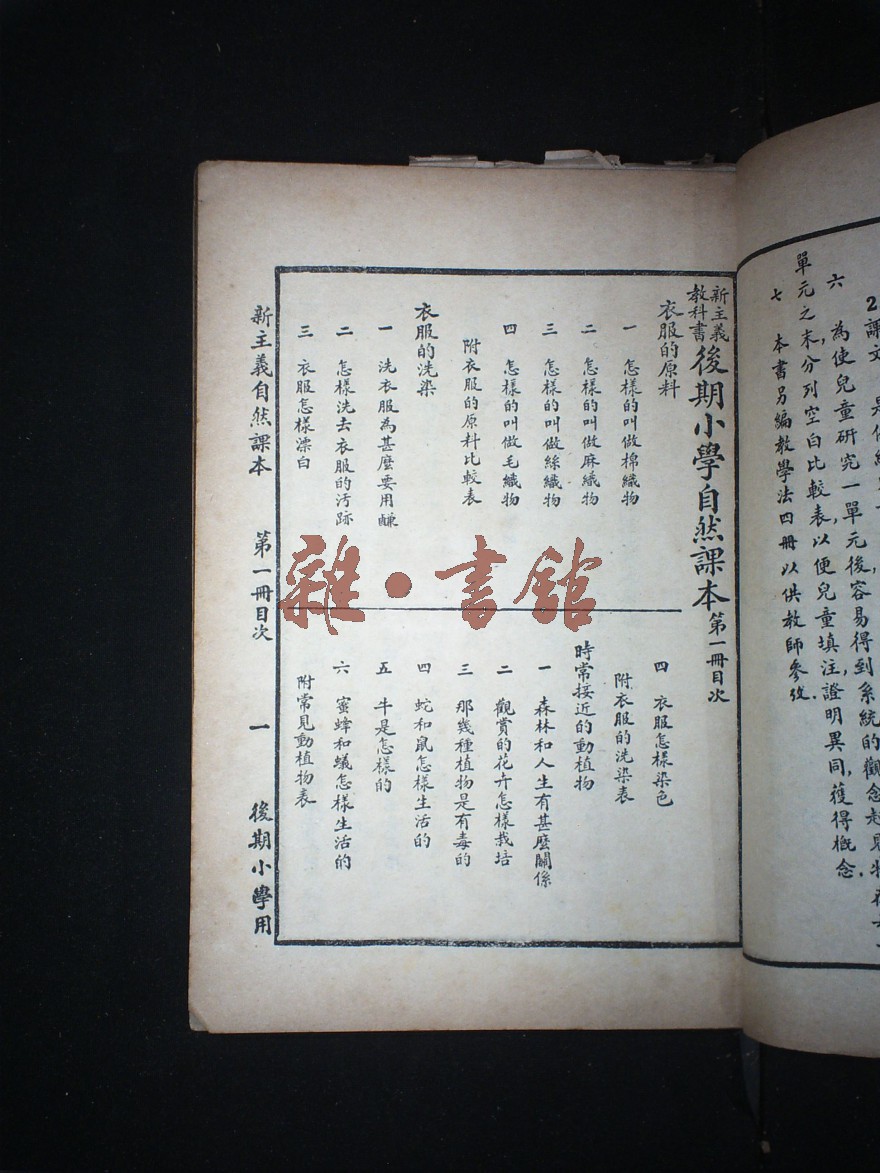 2
課文
六 為使兒童研究一單元後容易得到系統的觀念起見特在
單元之末,分列空白比較表,以便兒童填注,證明異同,獲得概念.
七 本書另編教學法四冊以供教師參攷.
新主義
教科書
後期小學自然課本 第一冊目次
衣服的原料
一 怎樣的叫做棉織物
二 怎樣的叫做麻織物
三 怎樣的叫做絲織物
四 怎樣的叫做毛織物
附衣服的原料比較表
衣服的洗染
一 洗衣服為甚麼要用鹻
二 怎樣洗去衣服的汚跡
三 衣服怎樣漂白
四 衣服怎樣染色
附衣服的洗染表
時常接近的動植物
一 森林和人生有甚麼關係
二 觀賞的花卉怎樣栽培
三 那幾種植物是有毒的
四 蛇和鼠怎樣生活的
五 牛是怎樣的
六 蜜蜂和蟻怎樣生活的
附常見動植物表
新主義自然課本 第一冊目次 一 後期小學用
雜·書館